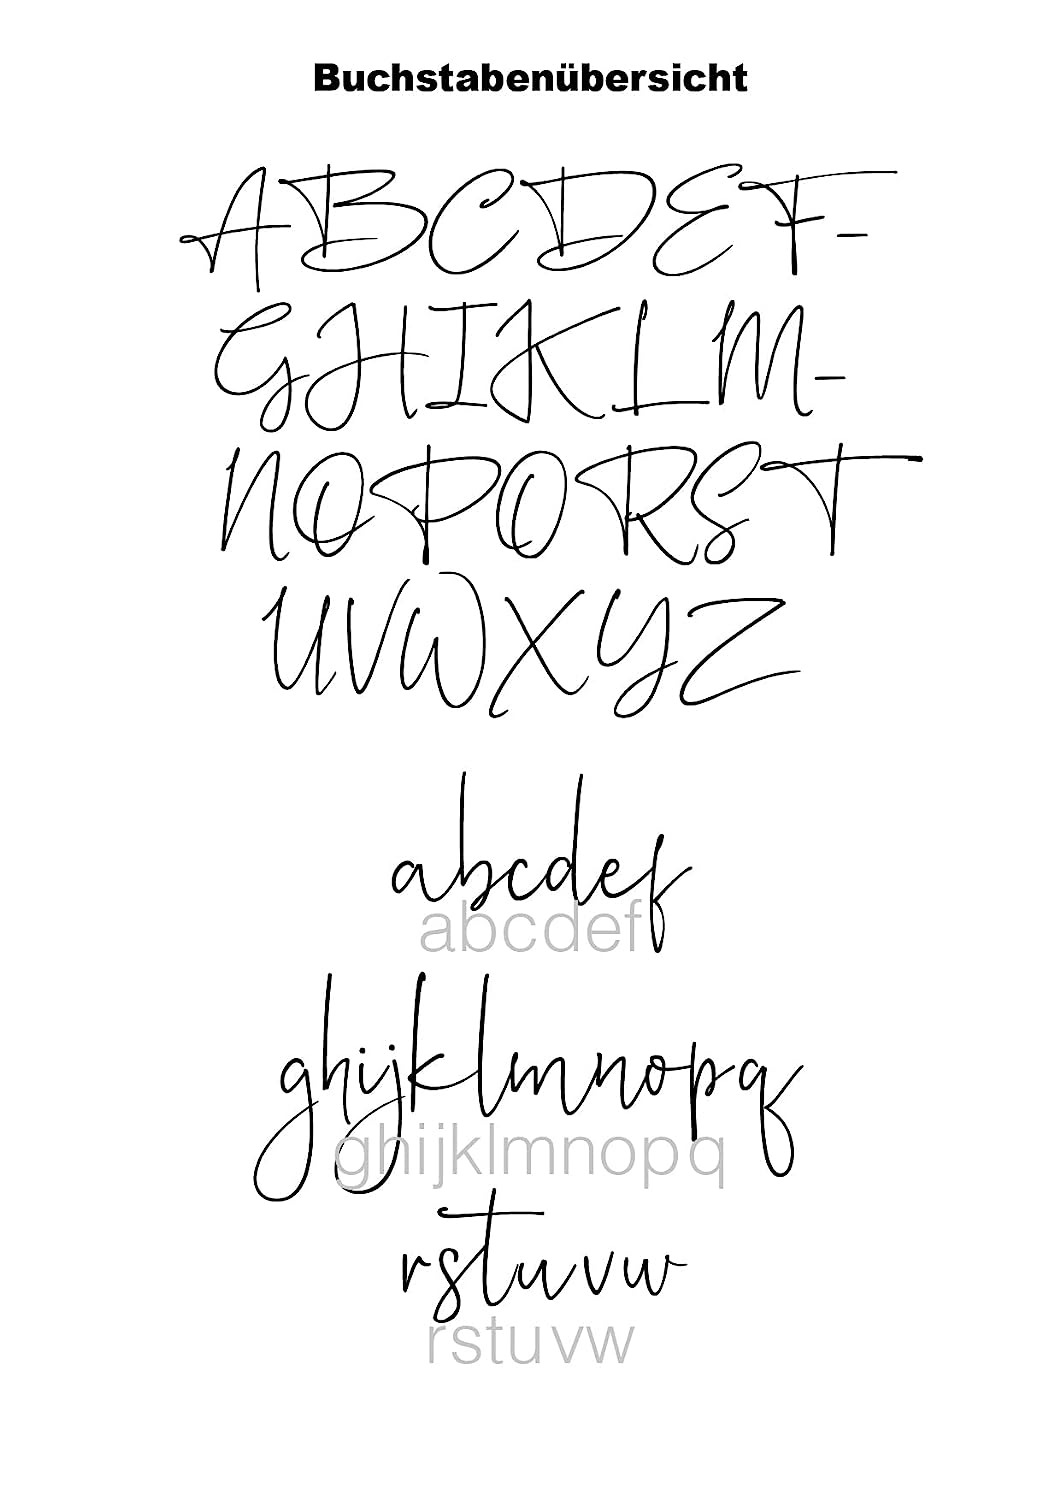 Buchstabenübersicht
ABCDEF-
GHIKLM-
NOPORST
UVWXYZ
abcdef
abcdef
ghijklmnopq
ghijklmnopq
rstuvw
rstuvw